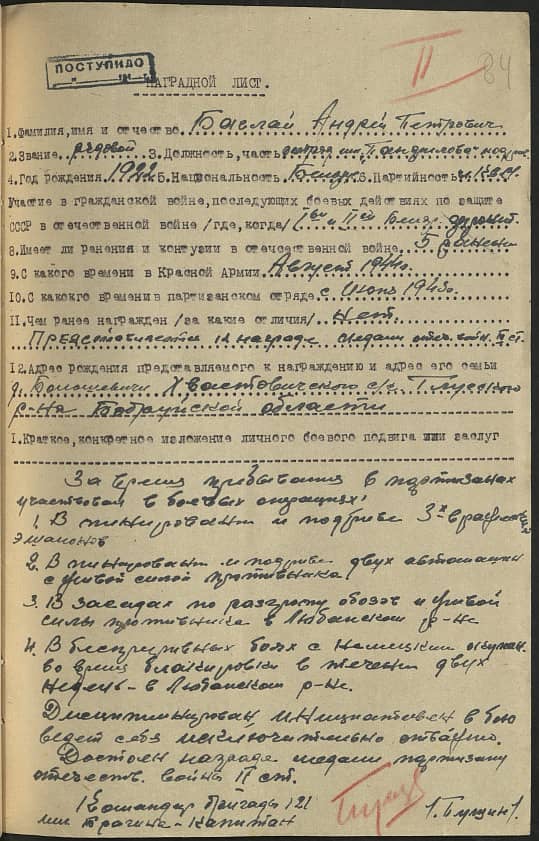 II 84
ПОСТУПИЛО
НАГРАДНОЙ ЛИСТ.
1.Фамилия,имя и отчество Баглай Андрей Петрович
2.Звание рядовой 3.Должность,часть
4.Год рождения 1922 5.Национальность 6.Партийность
Участие в гражданской войне,последующих боевых действиях по защите
СССР в отечественной войне /где,когда/
8.Имеет ли ранения и контузии в отечественной войне
9.С какого времени в Красной Армии Август 1944г.
10.С какокго времени в партизанском отряде с
11.Чем ранее награжден /за какие отличия/ нет.
Представляется к награде медали отеч. войн. II ст.
12.Адрес рождения представляемого к награждению и адрес его семьи
д. Хвастовичского с/с. Глусского
р-на Бобруйской области
I.Краткое,конкретное изложение личного боевого подвига или заслуг
За время пребывания в партизанах
участвовал в боевых операциях:
1. В минировании и подрыве 3х вражеских
эшалонов
2. В минировании и подрыве двух автомашин
с живой силой противника
3. В засадах по разгрому обозов и живой
силы противника в Любанском р-не
4. В беспрерывных боях с немецкими окупан.
во время блакировки в течении двух
недель - в Любанском р-не.
Дисциплинирован инициативен в бою
ведет себя исключительно отважно.
Достоен награде медали партизану
отечеств. войны II ст.
Командир бригады 121
им Брагина - Капитан /Пущин/.